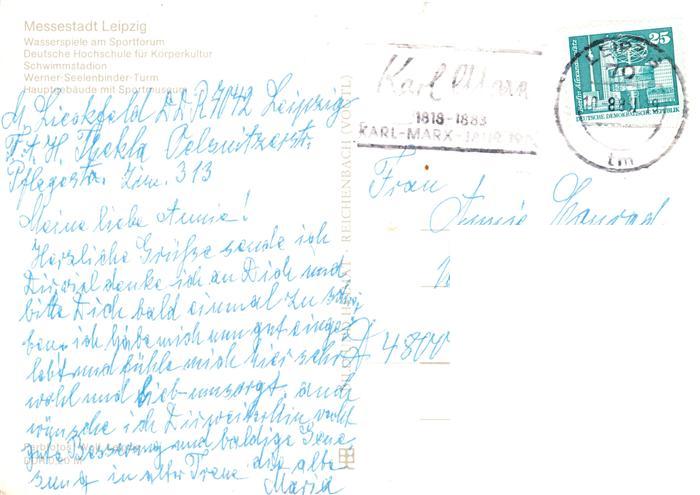 Messestadt Leipzig
Wasserspiele am Sportforum
Deutsche Hochschule für Körperkultur
Schwimmstadion
Werner-Seelenbinder-Turm
Hauptgebäude mit Sportmuseum
M. Lieskfeld DDR 7042 Leipzig
F. A. H. Thekla Oelsnitzerstr.
Pflegestr. Zim. 313
Meine liebe Annie!
Herzliche Grüße sende ich
Dir, viel denke ich an Dich und
bitte Dich bald einmal zu schrei
ben, ich habe mich nun gut einge
lebt und fühle mich hier sehr
wohl und lieb umsorgt, auch
wünsche ich Dir weiterhin recht
gute Besserung und baldige Gene
sung in alter Treue die alte
Maria
REICHENBACH (VOGTL)
Karl Marx
1818-1883
KARL-MARX-JAHR
LEIPZIG
70
25
DEUTSCHE DEMOKRATISCHE REPUBLIK
tm
Frau
Annie Conrad
D 4800